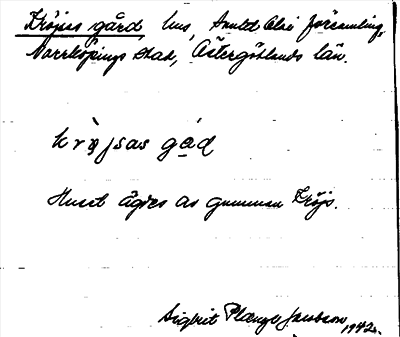 Kröjsas gård, hus, Sankt Olai församling,
Norrköpings stad, Östergötlands län.
krøjsas gåd
Huset ägdes av gumman Kröjs.
Sigbrit Plænge Jacobson, 1942.